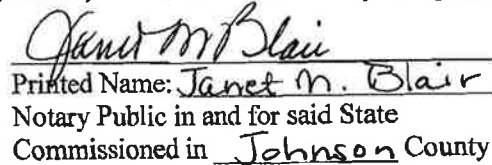 Janet M Blair
Printed Name: Janet M. Blair
Notary Public in and for said State
Commissioned in Johnson County